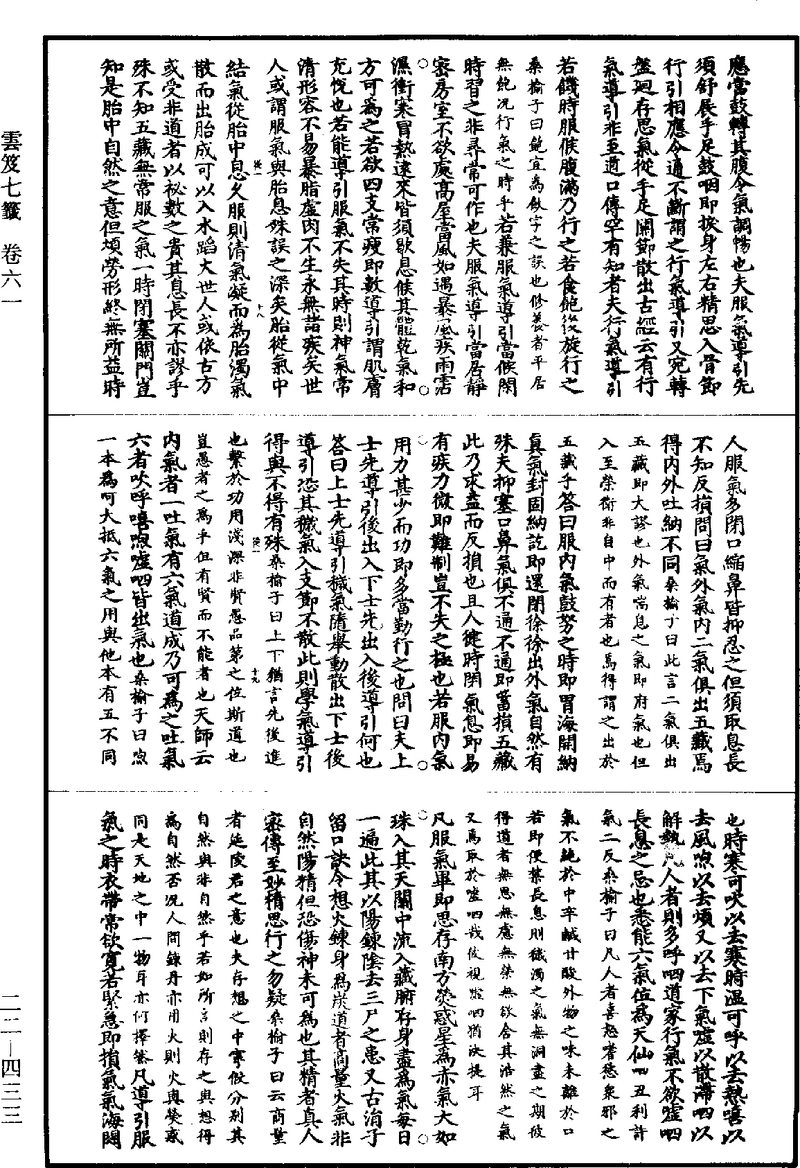 雲笈七籤 卷六一
應當鼓轉其腹令氣調暢也夫服氣導引先
須舒展手足鼓咽即挨身左右精思入骨節
行引相應令通不斷謂之行氣導引又宛轉
盤迴存思氣從手足關節散出古經云有行
氣導引非至道口傳罕有知者夫行氣導引
若饑時服候腹滿乃行之若食飽後旋行之
桑榆子曰飽宜為飲字之誤也修養者平居
無飽況行氣之時乎若兼服氣導引當候閑
時習之非尋常可作也夫服氣導引當居靜
密房室不欲處高屋當風如遇暴風疾雨霑
濕衝寒冒熱遠來皆須歇息候其體乾氣和
方可為之若欲四支常瘦即數導引謂肌膚
充悅也若能導引服氣不失其時則神氣常
清形容不易暴脂虛肉不生永無諸疾矣世
人或謂服氣與胎息殊誤之深矣胎從氣中
結氣從胎中息久服則清氣凝而為胎濁氣
散而出胎成可以入水蹈火世人或依古方
或受非道者以祕數之貴其息長不亦謬乎
殊不知五藏無常服之氣一時閉塞關門豈
知是胎中自然之意但煩勞形終無所益時
人服氣多閉口縮鼻皆抑忍之但須取息長
不知反損問曰氣外氣內二氣俱出五藏焉
得內外吐納不同桑榆子曰此言二氣俱出
五藏即大謬也外氣喘息之氣即府氣也但
入至榮衛非自中而有者也焉得謂之出於
五藏乎答曰服內氣鼓努之時即胃海開納
真氣封固納訖即還閉徐徐出外氣自然有
殊夫抑塞口鼻氣俱不通不通即當損五藏
此乃求益而反損也且人健時閉氣息即易
有疾力微即難制豈不失之極也若服內氣
用力甚少而功即多當勤行之也問曰夫上
士先導引後出入下士先出入後導引何也
答曰上士先導引穢氣隨舉動散出下士後
導引恐其穢氣入支節不散此則學氣導引
得與不得有殊桑榆子曰上下猶言先後進
也繫於功用淺深非賢愚品第之位斯道也
豈愚者之為乎但有賢而不能者也天師云
內氣者一吐氣有六氣道成乃可為之吐氣
六者吹呼嘻煦噓呬皆出氣也桑榆子曰煦
一本為呵大抵六氣之用與他本有五不同
也時寒可吹以去寒時溫可呼以去熱嘻以
去風煦以去煩又以去下氣噓以散滯呬以
解熱凡人者則多呼呬道家行氣不欲噓呬
長息之忌也悉能六氣位為天仙呬丑利許
氣二反桑榆子曰凡人者喜怒著愁衆邪之
氣不絕於中辛鹹甘酸外物之味未離於口
若即便禁長息則穢濁之氣無洞盡之期彼
得道者無思無慮無禁無欲含真浩然之氣
又焉取於噓呬哉俯視噓呬猶決提耳
凡服氣畢即思存南方熒惑星為赤氣大如
珠入其天關中流入藏腑存身盡為氣每日
一遍此其以陽鍊陰去三尸之患又古涓子
留口訣令想火鍊身為炭道者商量火氣非
自然陽精但恐傷神未可為也其精者真人
密傳至妙精思行之勿疑桑榆子曰云商量
者延陵君之意也夫存想之中寧做分別其
自然與非自然乎若如所言則存之與想得
為自然否況人間鍊丹亦用火則火與熒惑
同是天地之中一物耳亦何擇然凡導引服
氣之時衣帶常欲寬若緊急即損氣氣海關
二二—四三三